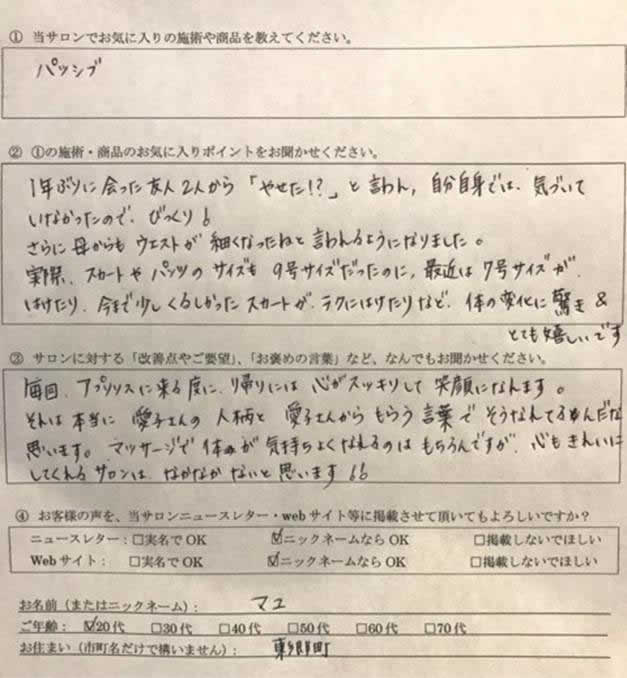 ① 当サロンでお気に入りの施術や商品を教えてください。
パッシブ
② ①の施術・商品のお気に入りポイントをお聞かせください。
1年ぶりに会った友人2人から「やせた!?」と言われ,自分自身では、気づいて
いなかったので、びっくり!
さらに母からも ウエストが 細くなったねと言われるようになりました。
実際、スカートや パンツの サイズも 9号サイズだったのに,最近は 7号サイズが、
はけたり、今まで少しくるしかった スカートが、ラクにはけたりなど、体の変化に驚き &
とても嬉しいです
③ サロンに対する「改善点やご要望」、「お褒めの言葉」など、なんでもお聞かせください。
毎回、アプリリスに来る度に、帰りには 心がスッキリして 笑顔になれます。
それは本当に 愛子さんの 人柄と 愛子さんから もらう 言葉で そうなれてるんだな
思います。マッサージで 体が 気持ちよくなれるのは もちろんですが、心もきれいに
してくれる サロンは、なかなか ないと思います!!
④ お客様の声を、当サロンニュースレター・webサイト等に掲載させて頂いてもよろしいですか?
ニュースレター:□実名でOK ☑ニックネームならOK □掲載しないでほしい
Webサイト: □実名でOK ☑ニックネームならOK □掲載しないでほしい
お名前(またはニックネーム): マユ
ご年齢: ☑20代 □30代 □40代 □50代 □60代 □70代
お住まい(市町名だけで構いません): 東郷町